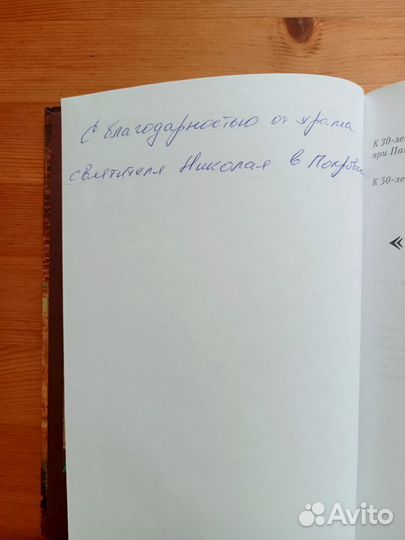 С благодарностью от храма
святителя Николая в Покров
К 30-ле
при Па
К 50-ле
«
Avito